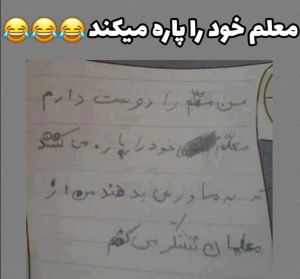 معلم خود را پاره میکند 😂😂😂
من معلّم را دوست دارم
معلّم خود را پاره می کند
که به ما درس بدهند من از
معلمان تشکر می کنم